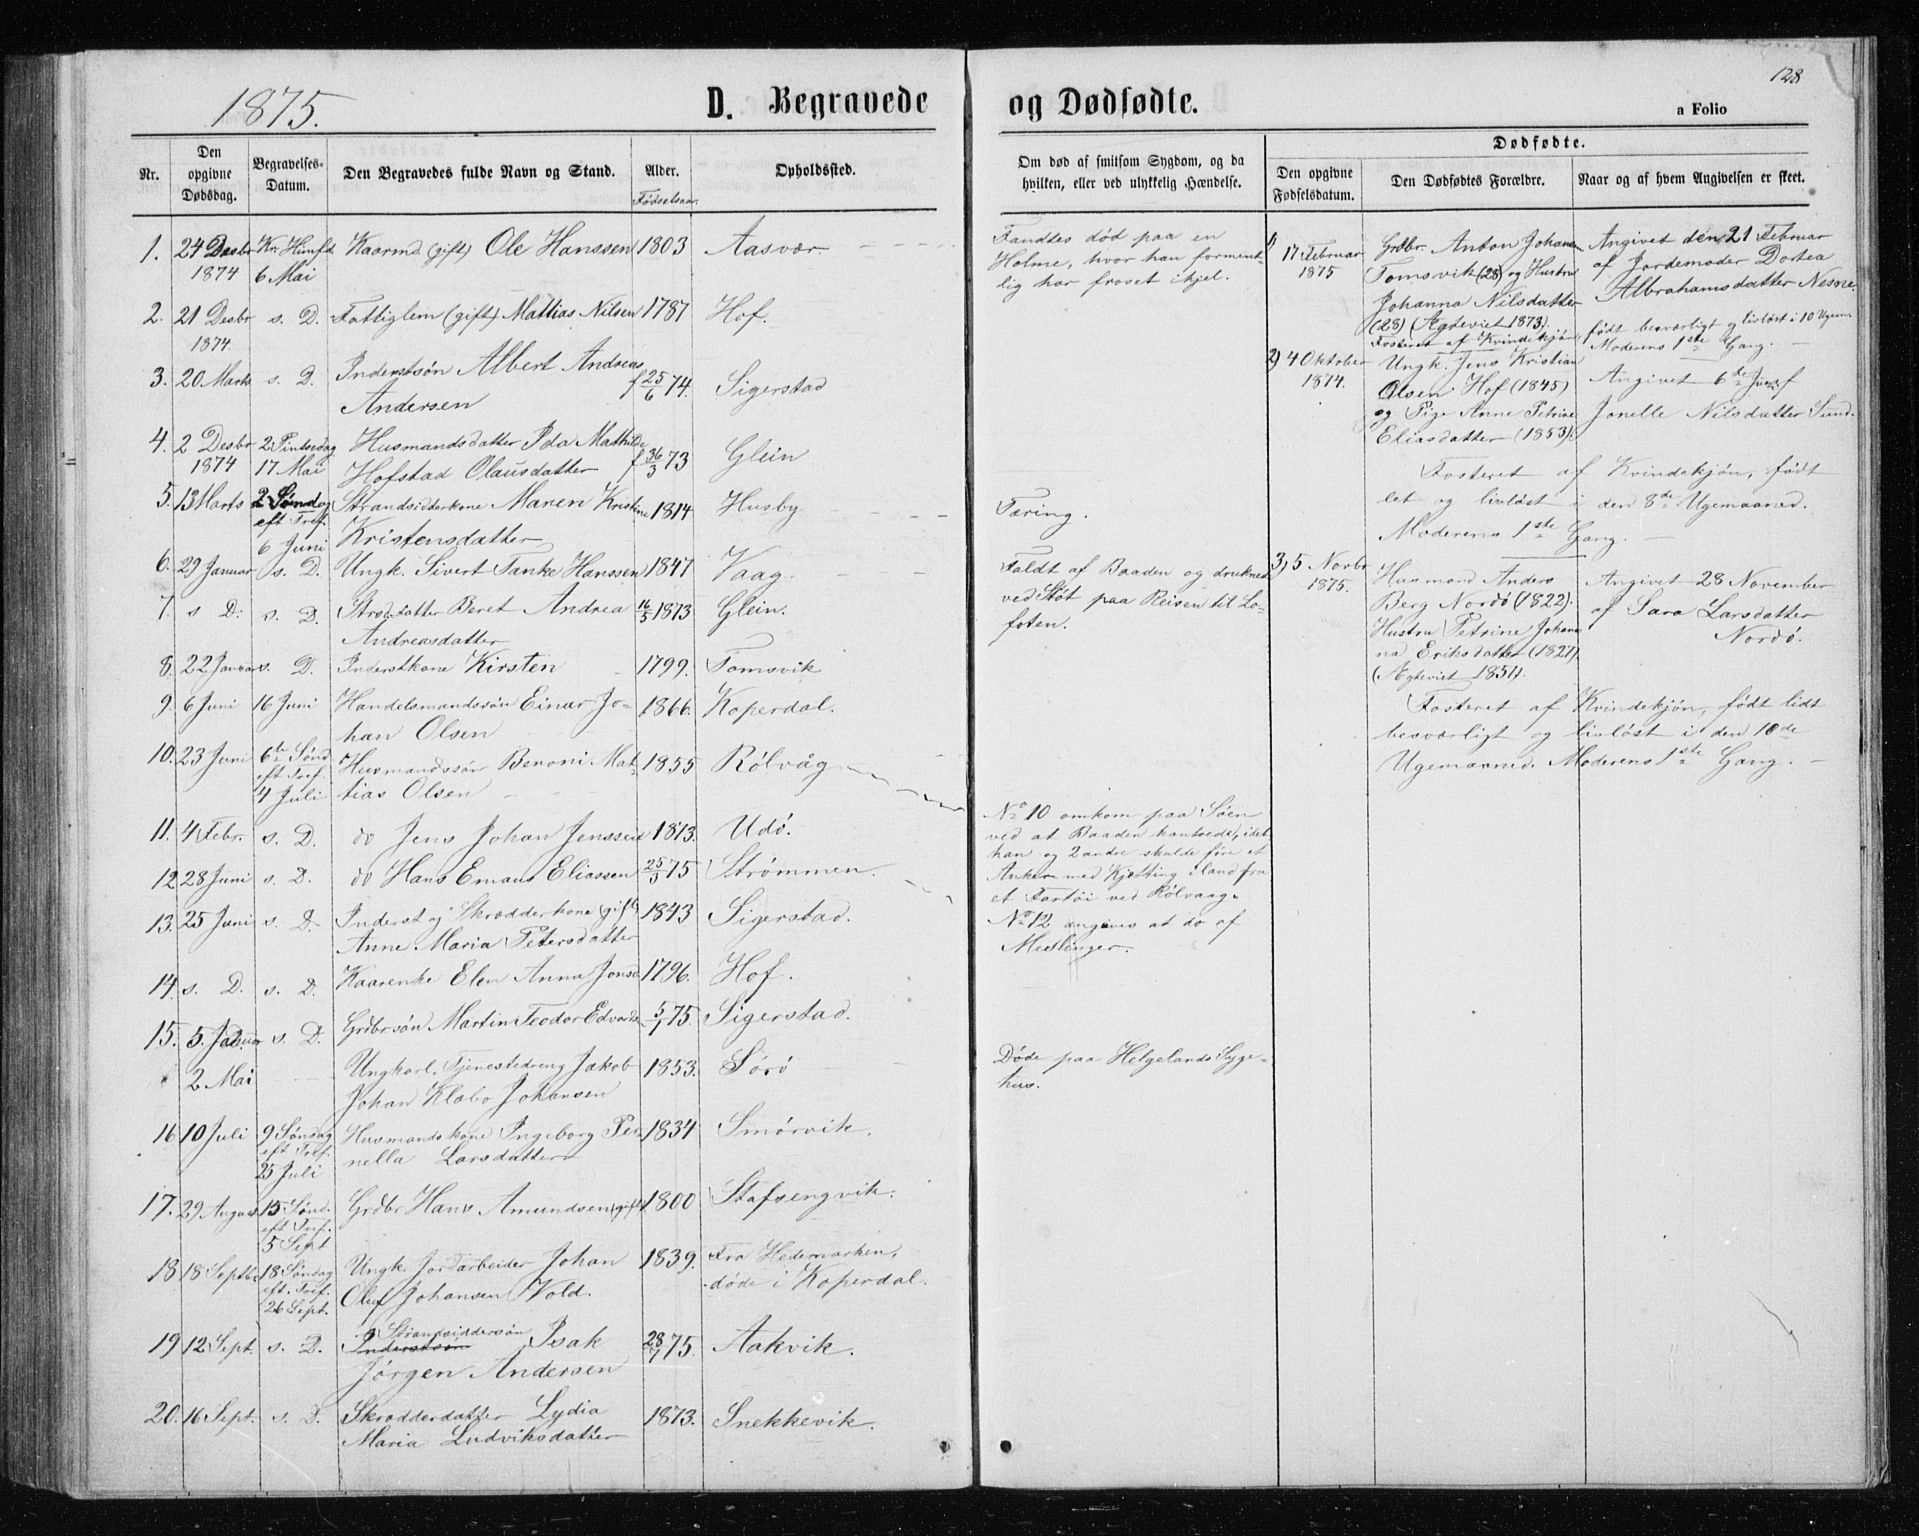 128
1875.
D. Begravede
og Dødfødte.
a Folio
Nr.
Den opgivne Dødsdag.
Begravelses-Datum.
Den Begravedes fulde Navn og Stand.
Alder.
Fødselsaar.
Opholdssted.
Om død af smitsom Sygdom, og da hvilken, eller ved ulykkelig Hændelse.
Dødfødte.
Den opgivne Fødselsdatum.
Den Dødfødtes Forældre.
Naar og af hvem Angivelsen er skeet.
1. 24 Desbr Kr. Himft. Kaarmd. (gift) Ole Hanssen 1803 Aasvær.
1874 6 Mai
2. 21 Desbr s. D. Fattiglem (gift) Mathias Nilsen 1787 Hof.
1874.
3. 20 Marts s. D. Inderstsøn Albert Andreas f 25/6 74. Sigerstad
Andersen
4. 2 Desbr 2 Pintsedag Husmandsdatter Ida Mathilde f 36/3 73 Glein
1874 17 Mai Hofstad Olausdatter
5. 13 Marts 2 Søndag Strandsidderkone Maren Kristine 1814 Husby
eft Tref.
6 Juni Kristensdatter
6. 29 Januar s. D. Ungk. Sivert Tanke Hanssen 1847 Vaag.
7. s D. s. D. Strdsdatter Beret Andrea 16/5 1873 Glein.
Andreasdatter
8. 22 Januar s. D. Inderstkone Kirsten 1799. Tomsvik
9. 6 Juni 16 Juni Handelsmandssøn Einar Jo- 1866. Koperdal.
han Olsen
10. 23 Juni 6te Sønd Husmandssøn Benoni Mat- 1855 Rølvåg
eft Tref.
4 Juli tias Olsen
11. 4 Febr. s. D. do Jens Johan Jenssen 1873. Udø.
12 28 Juni s. D. do Hans Emaus Eliassen 25/5 75 Strømmen.
13. 25 Juni s. D. Inderst og Skrædderkone (gift) 1843 Sigerstad.
Anne Maria Petersdatter
14. s. D. s. D. Kaarenke Elen Anna Jonsd. 1796. Hof.
15. 5. Januar s. D. Grdbrsøn Martin Teodor Edvards. 5/1 75 Sigerstad.
2 Mai Ungkarl, Tjenestedreng Jakob 1853. Sørø
Johan Klæbo Johansen
16 10 Juli 9 Søndag Husmandskone Ingeborg Per- 1834 Smørvik.
eft Tref.
25 Juli nella Larsdatter
17. 29 August 15 Sønd. Grdbr Hans Amundsen (gift) 1800 Stafsengvik.
eft Tref.
5 Sept
18 18 Septbr 18 Søndag Ungk. Jordarbeider Johan 1839. Fra Hedemarken,
eft. Tref. døde i Koperdal.
26 Sept. Oluf Johansen Vold.
19 12 Sept. s. D. Strandsiddersøn Isak 28/7 75. Aakvik.
Inderstsøn
Jørgen Andersen
20. 16 Sept. s. D. Skrædderdatter Lydia 1873. Snekkevik.
Maria Ludviksdatter
Fandtes død paa en
Holme, hvor han forment-
lig har froset ihjel.
Tæring.
Faldt af Baaden og druknede
ved Støt paa Reisen til Lo-
foten.
No 10 omkom paa Søen
ved at Baaden kantrede, idet
han og 2 andre skulde føre et
Anker med Kjetting iland fra
et Fartøi ved Rølvaag.
No 12 angives at dø af
Meslinger.
Døde paa Helgelands Syge-
hus.
1) 17 Februar
1875
Grdbr. Anton Johansen
Tomsvik (28) og Hustru
Johanna Nilsdatter
(28) (Ægteviet 1873).
Fosteret af Kvindekjøn
Angivet den 21 Februar
af Jordemoder Dortea
Abrahamsdatter Nesne.
født besværligt og livløst i 10 Ugem.
Moderens 1ste Gang.
2) 4 Oktober
1874.
Ungk. Jens Kristian
Olsen Hof (1845)
og Pige Anne Petrine
Eliasdatter (1853).
Angivet 6de Juni af
Jonelle Nilsdatter Sund.
Fosteret af Kvindekjøn, født
let og livløst i den 8de Ugemaaned.
Moderens 1ste Gang.
3) 5 Novbr
1875.
Husmand Anders
Berg Nordø (1822).
Hustru Petrine Johan-
na Eriksdatter (1827)
(Ægteviet 1851).
Angivet 28 November
af Sara Larsdatter
Nordø.
Fosteret af Kvindekjøn, født lidt
besværligt og livløst i den 10de
Ugemaaned. Moderens 1ste Gang.